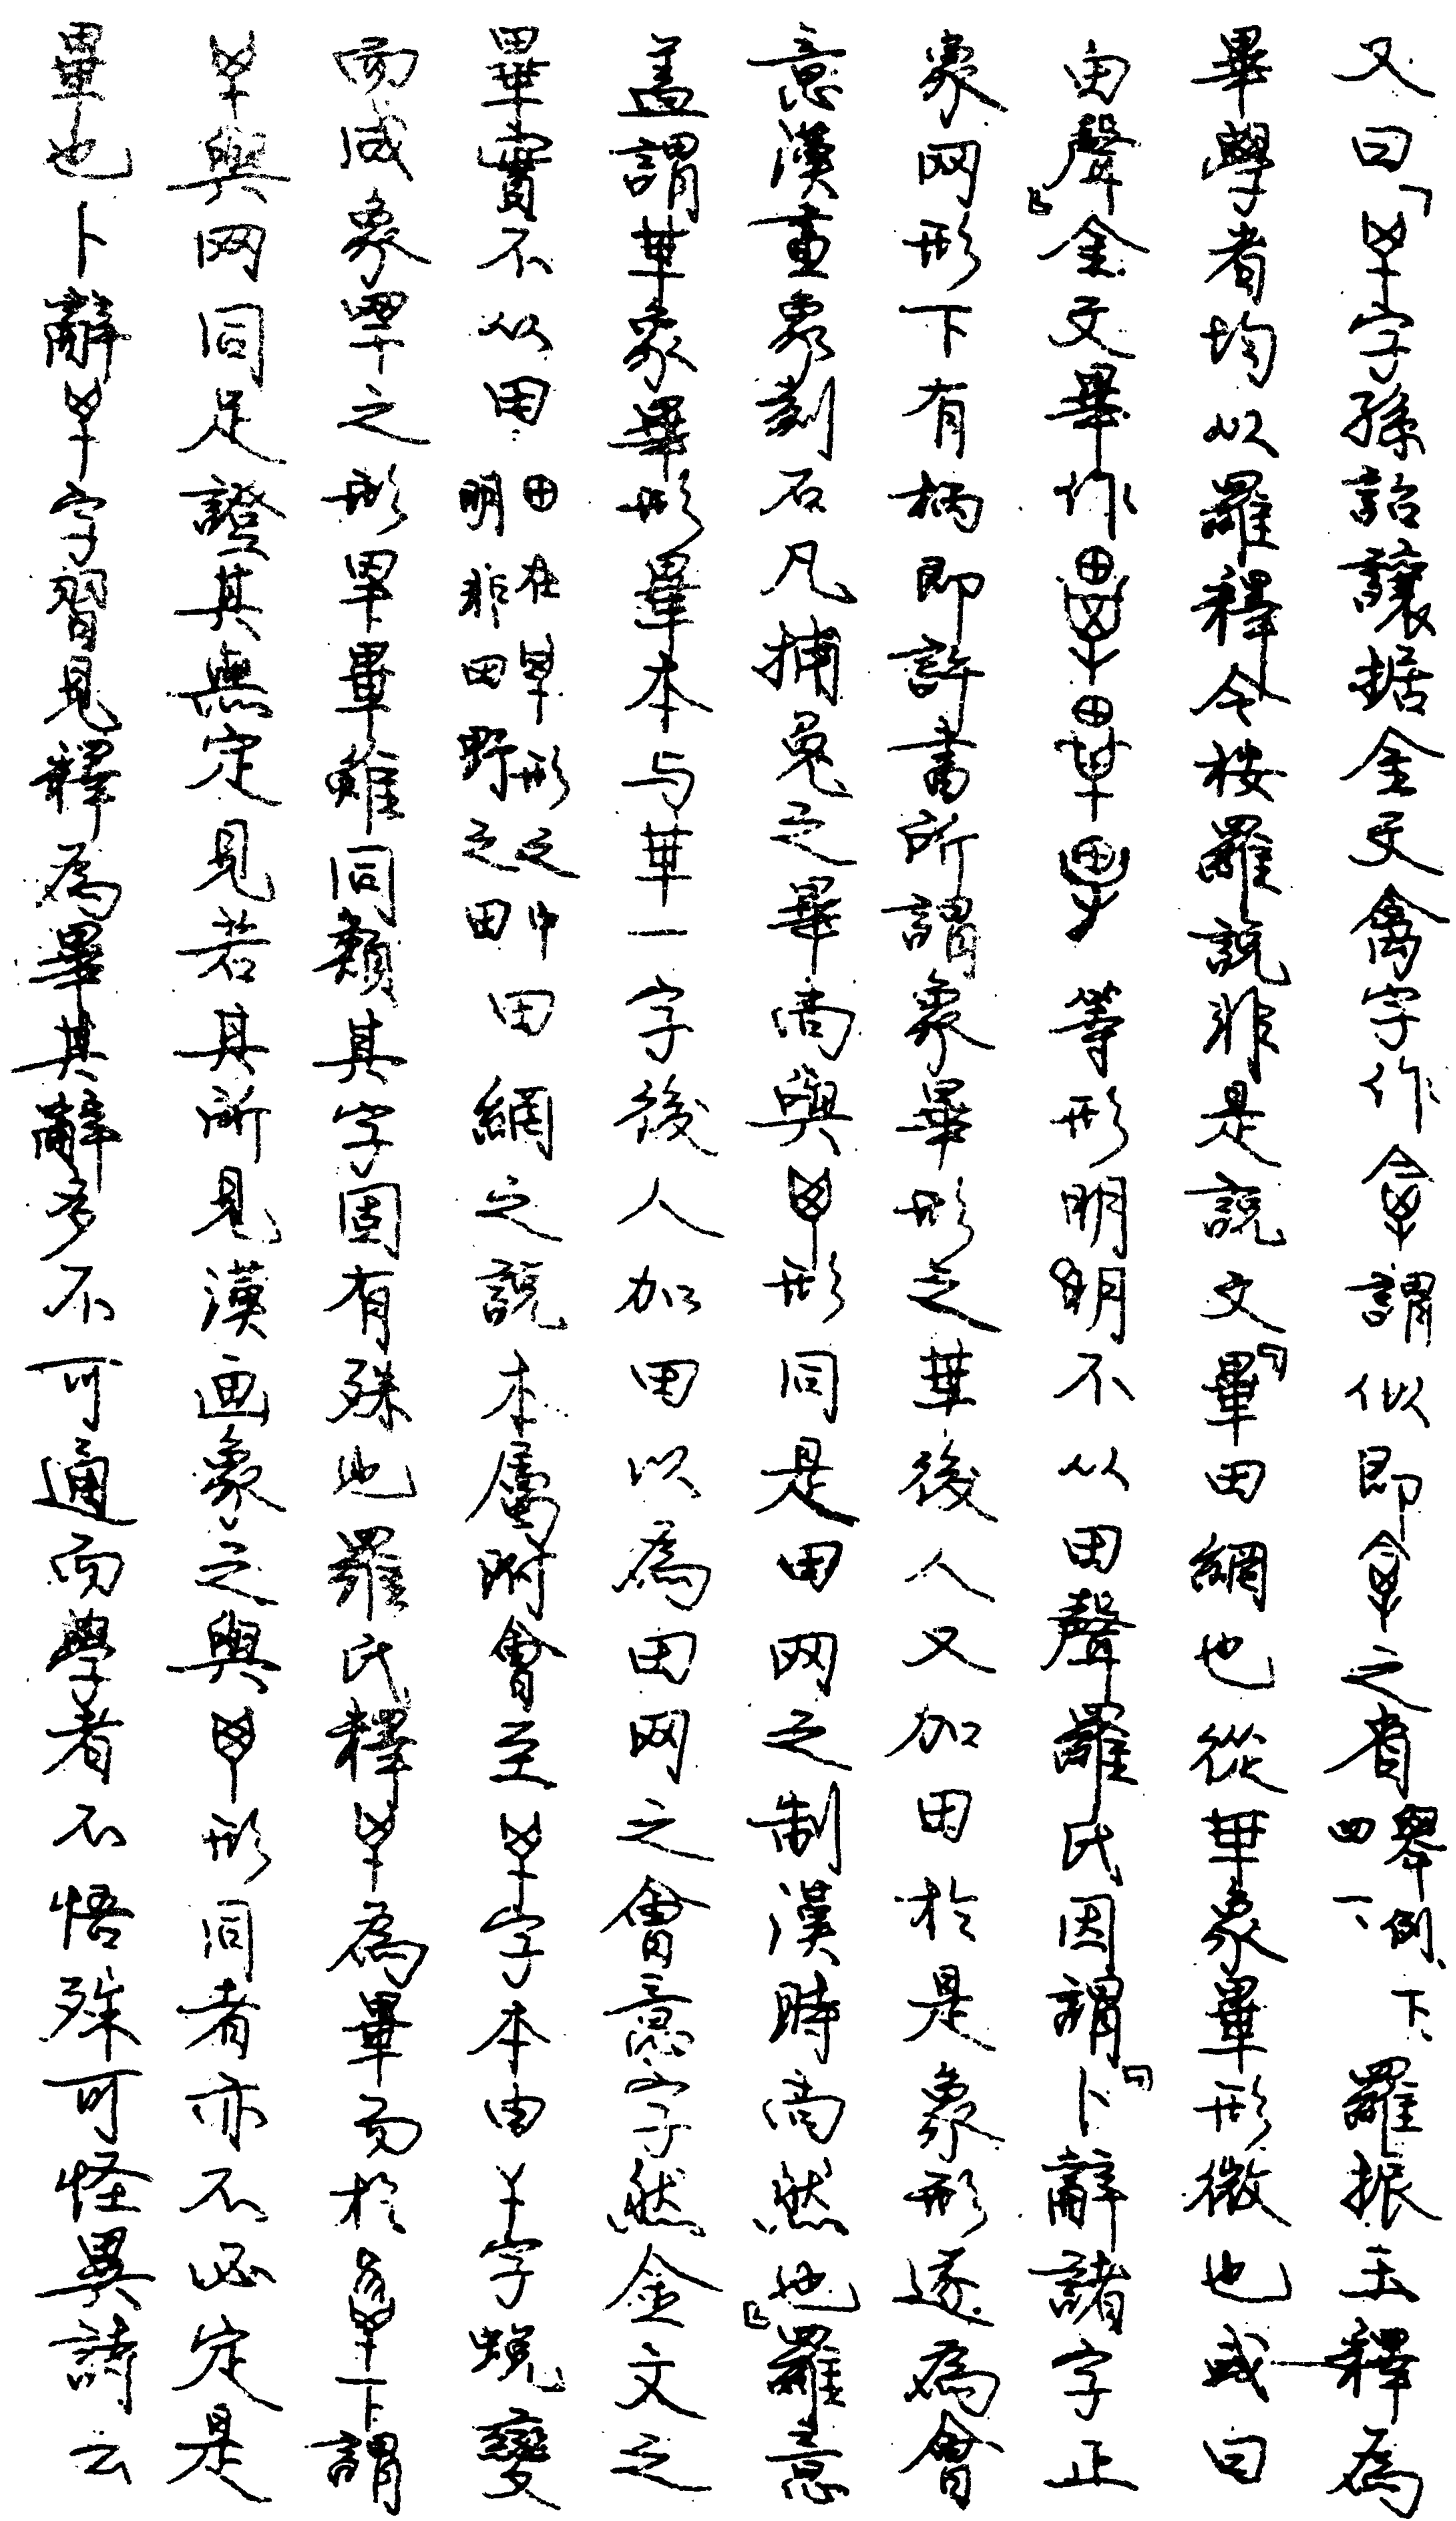 又曰「字孫詒讓据金文禽字作謂似即之省舉例、下、四一、羅振玉釋為
畢學者均以羅釋今按羅說非是說文『畢田網也從𠦒象畢形微也或曰
由聲』金文畢作等形明明不从由聲羅氏因謂『卜辭諸字正
象网形下有柄即許書所謂象畢形之𠦒後人又加田於是象形遂為會
意漢畫象刻石凡捕兔之畢尚與形同是田网之制漢時尚然也』羅意
盖謂𠦒象畢形畢本与𠦒一字後人加田以為田网之會意字然金文之
畢實不从田田在𠦒形之中明非田野之田田網之說本屬附會至字本由字蛻變
而成象罕之形罕畢雖同類其字固有殊也羅氏釋為畢而於下謂
與网同足證其無定見若其所見漢画象之與形同者亦不必定是
畢也卜辭字習見釋為畢其辭多不可通而學者不悟殊可怪異詩云